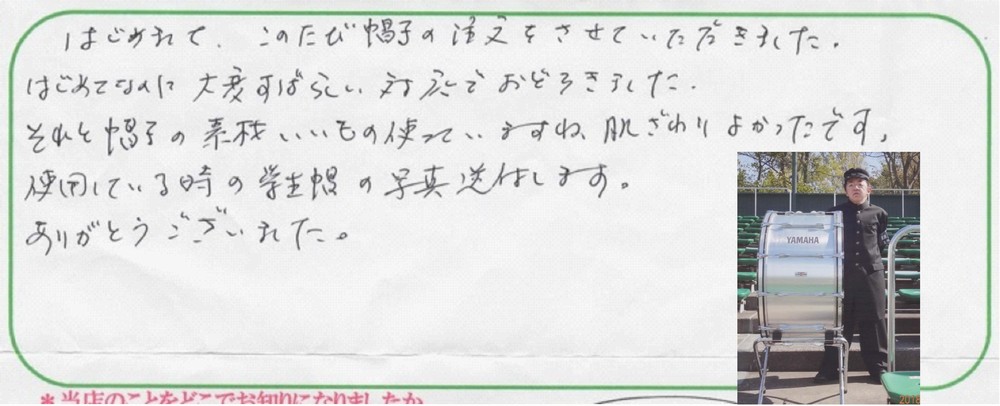 はじめまして、このたび帽子の注文をさせていただきました。
はじめてなのに大変すばらしい対応でおどろきました。
それと帽子の素材いいもの使っていますね、肌ざわりよかったです。
使用している時の学生帽の写真送付します。
ありがとうございました。
YAMAHA
*当店のことをどこでお知りになりましたか